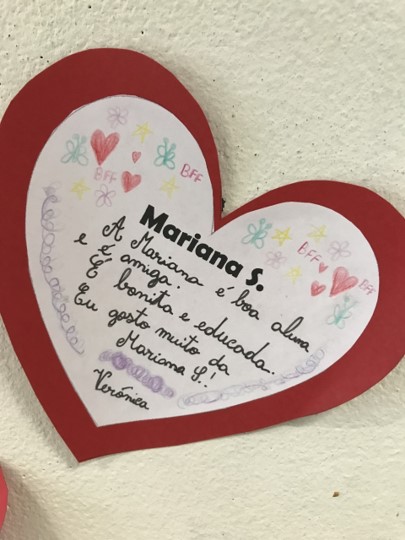 BFF
BFF
Mariana S.
BFF
BFF
A Mariana é boa aluna
e é amiga.
É bonita e educada.
Eu gosto muito da
Mariana S.!
Verónica